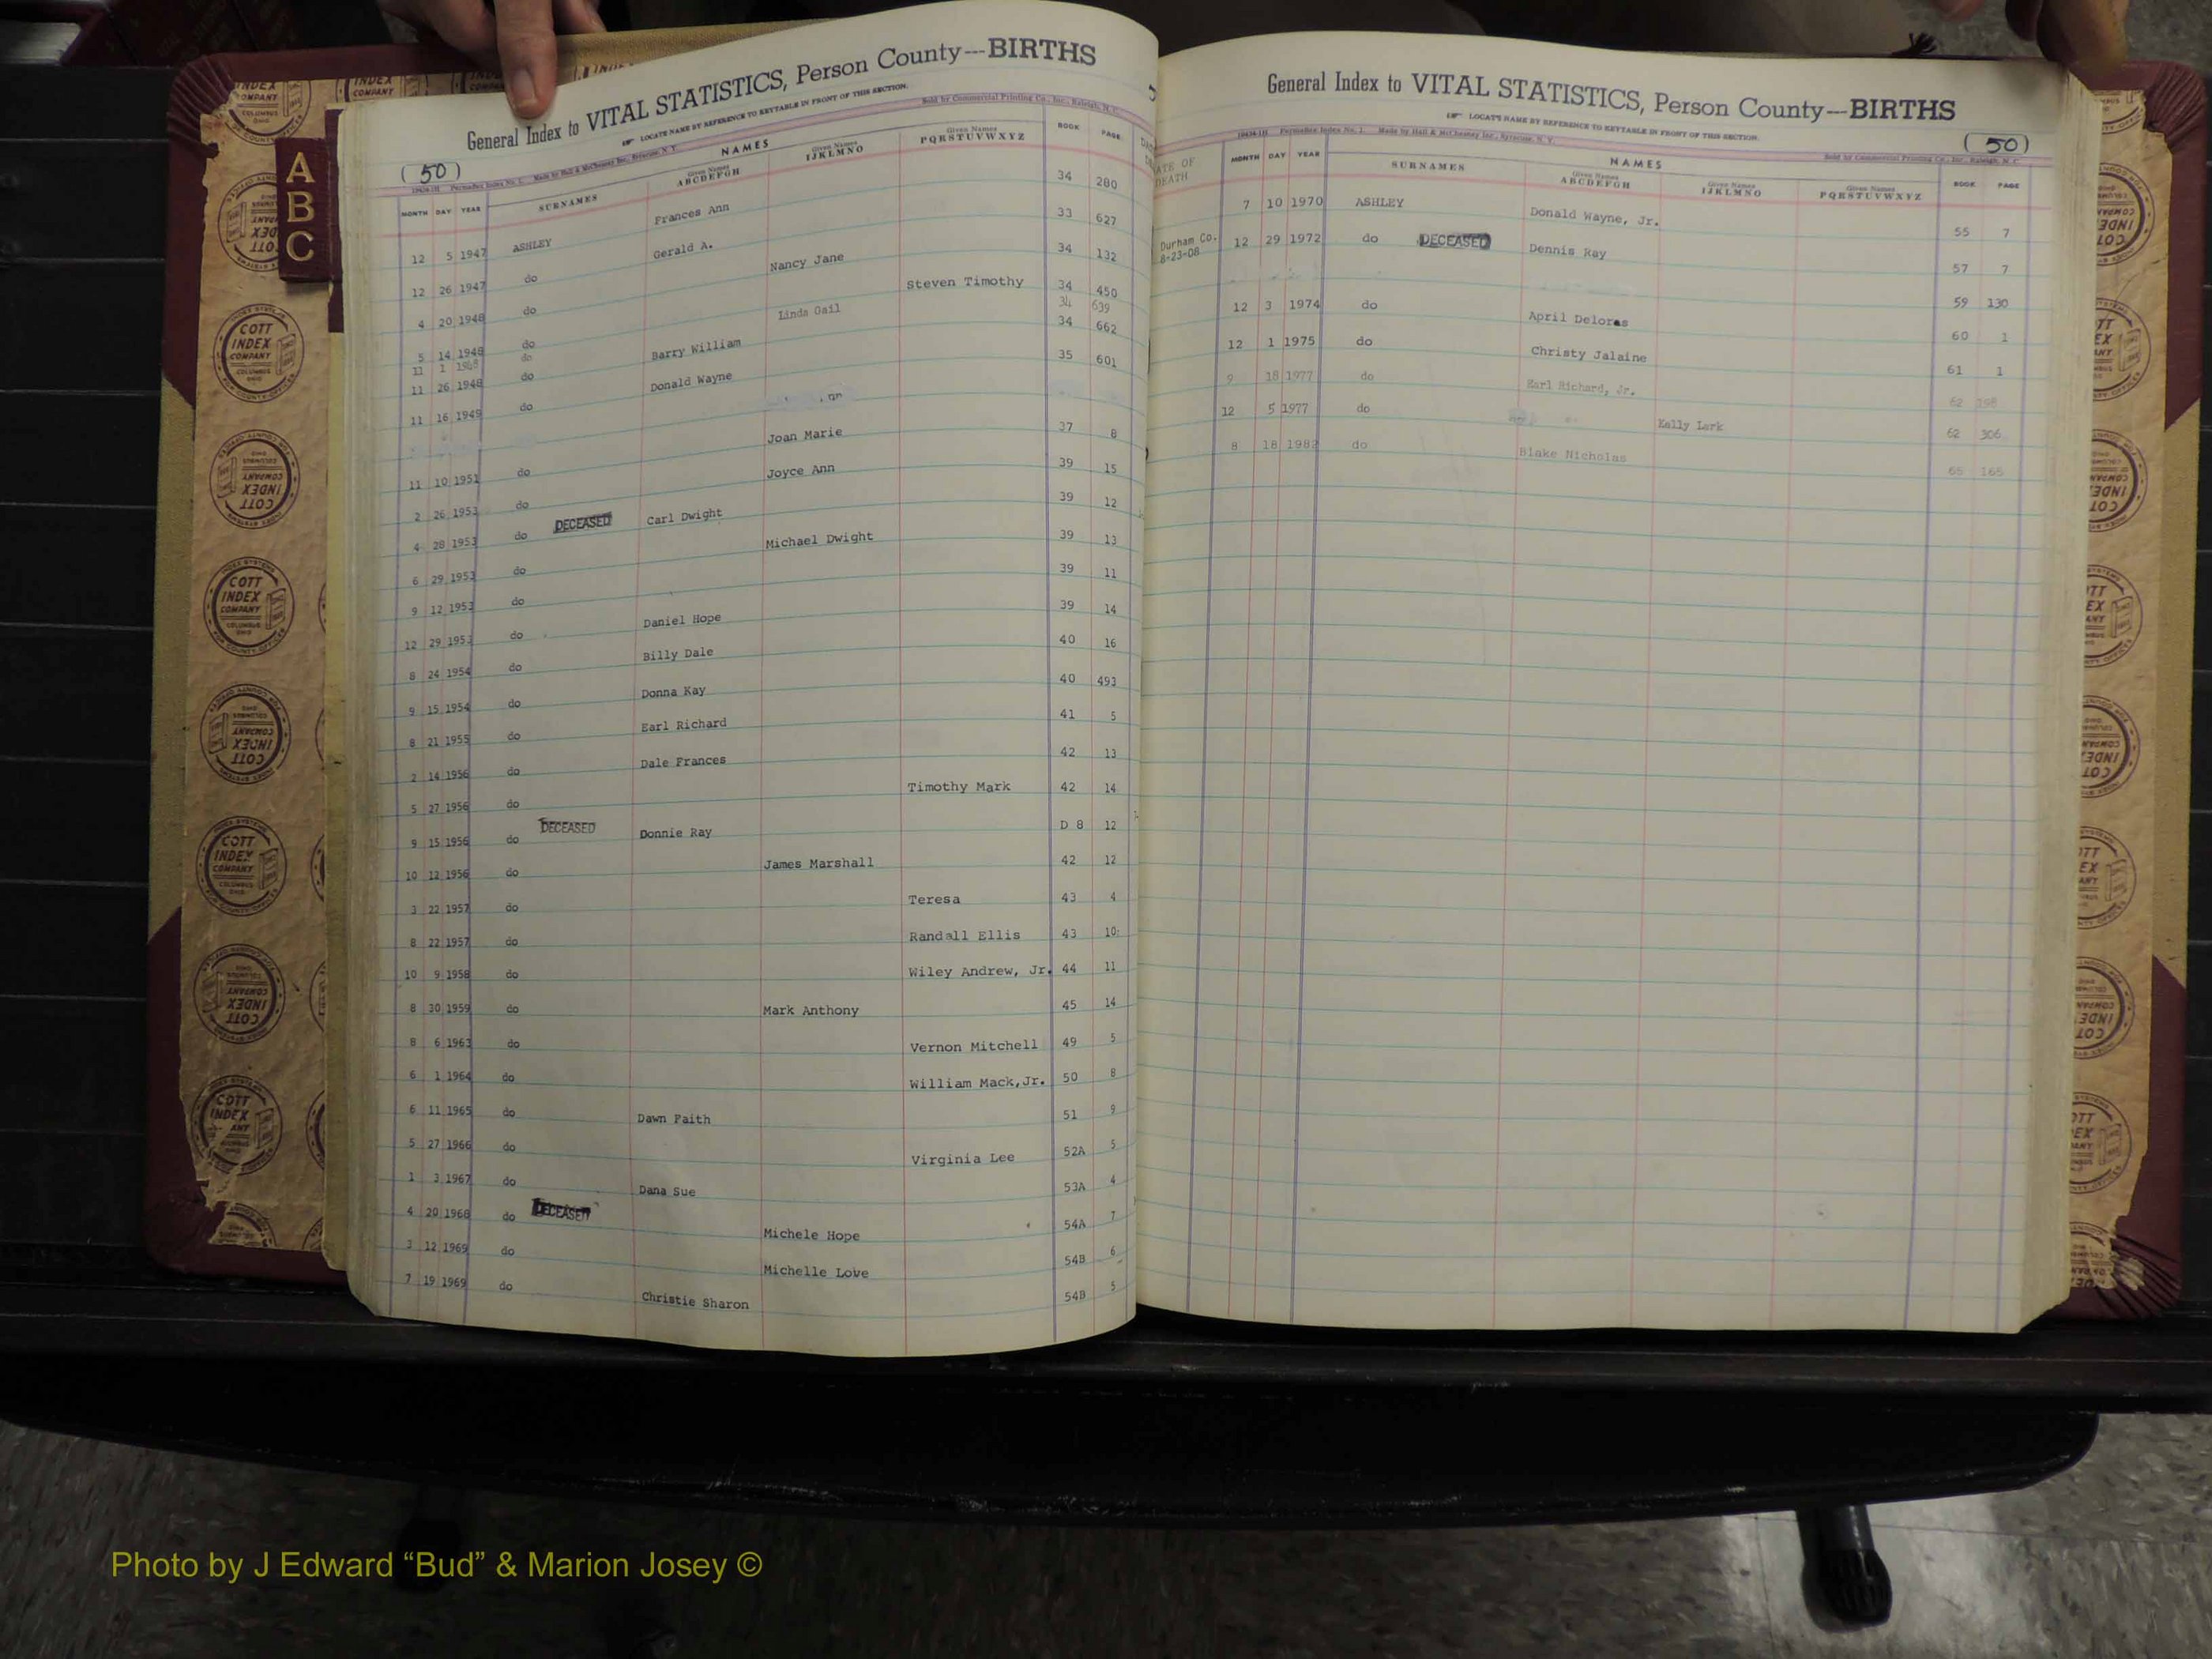 General Index to VITAL STATISTICS, Person County---BIRTHS
LOCATE NAME BY REFERENCE TO KEYTABLE IN FRONT OF THIS SECTION.
Made by Hall & McChesney Inc., Syracuse, N. Y. Sold by Commercial Printing Co., Inc., Raleigh, N. C.
(50)
NAMES
MONTH DAY YEAR SURNAMES Given Names ABCDEFGH Given Names IJKLMNO Given Names PQRSTUVWXYZ BOOK PAGE
12 5 1947 ASHLEY Frances Ann 34 280
12 26 1947 do Gerald A. 33 627
4 20 1948 do Nancy Jane 34 132
5 14 1948 do Steven Timothy 34 450
11 1 1948 do Linda Gail 34 639
11 26 1948 do Barry William 34 662
11 16 1949 do Donald Wayne 35 601
11 10 1951 do Joan Marie 37 8
2 26 1953 do Joyce Ann 39 15
4 28 1953 do DECEASED Carl Dwight 39 12
6 29 1953 do Michael Dwight 39 13
9 12 1953 do 39 11
12 29 1953 do Daniel Hope 39 14
8 24 1954 do Billy Dale 40 16
9 15 1954 do Donna Kay 40 493
8 21 1955 do Earl Richard 41 5
2 14 1956 do Dale Frances 42 13
5 27 1956 do Timothy Mark 42 14
9 15 1956 do DECEASED Donnie Ray D 8 12
10 12 1956 do James Marshall 42 12
3 22 1957 do Teresa 43 4
8 22 1957 do Randall Ellis 43 10
10 9 1958 do Wiley Andrew, Jr. 44 11
8 30 1959 do Mark Anthony 45 14
8 6 1963 do Vernon Mitchell 49 5
6 1 1964 do William Mack,Jr. 50 8
6 11 1965 do Dawn Faith 51 9
5 27 1966 do Virginia Lee 52A 5
1 3 1967 do Dana Sue 53A 4
4 20 1968 do DECEASED Michele Hope 54A 7
3 12 1969 do Michelle Love 54B 6
7 19 1969 do Christie Sharon 54B 5
General Index to VITAL STATISTICS, Person County---BIRTHS
LOCATE NAME BY REFERENCE TO KEYTABLE IN FRONT OF THIS SECTION.
Made by Hall & McChesney Inc., Syracuse, N. Y. Sold by Commercial Printing Co., Inc., Raleigh, N. C.
(50)
NAMES
DATE OF DEATH MONTH DAY YEAR SURNAMES Given Names ABCDEFGH Given Names IJKLMNO Given Names PQRSTUVWXYZ BOOK PAGE
7 10 1970 ASHLEY Donald Wayne, Jr. 55 7
Durham Co. 8-23-08 12 29 1972 do DECEASED Dennis Ray 57 7
12 3 1974 do April Delores 59 130
12 1 1975 do Christy Jalaine 60 1
9 18 1977 do Earl Richard, Jr. 61 1
62
12 5 1977 do Kelly Lerk 62 306
8 18 1982 do Blake Nicholas 66 165
A
B
C
COTT
INDEX
COMPANY
COLUMBUS
OHIO
Photo by J Edward “Bud” & Marion Josey ©